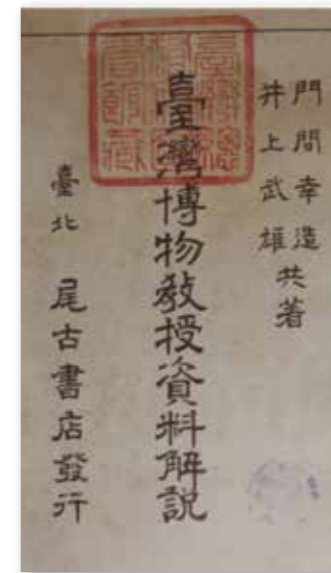 門間幸造
井上武雄共著
臺灣博物教授資料解說
臺北 尾古書店發行